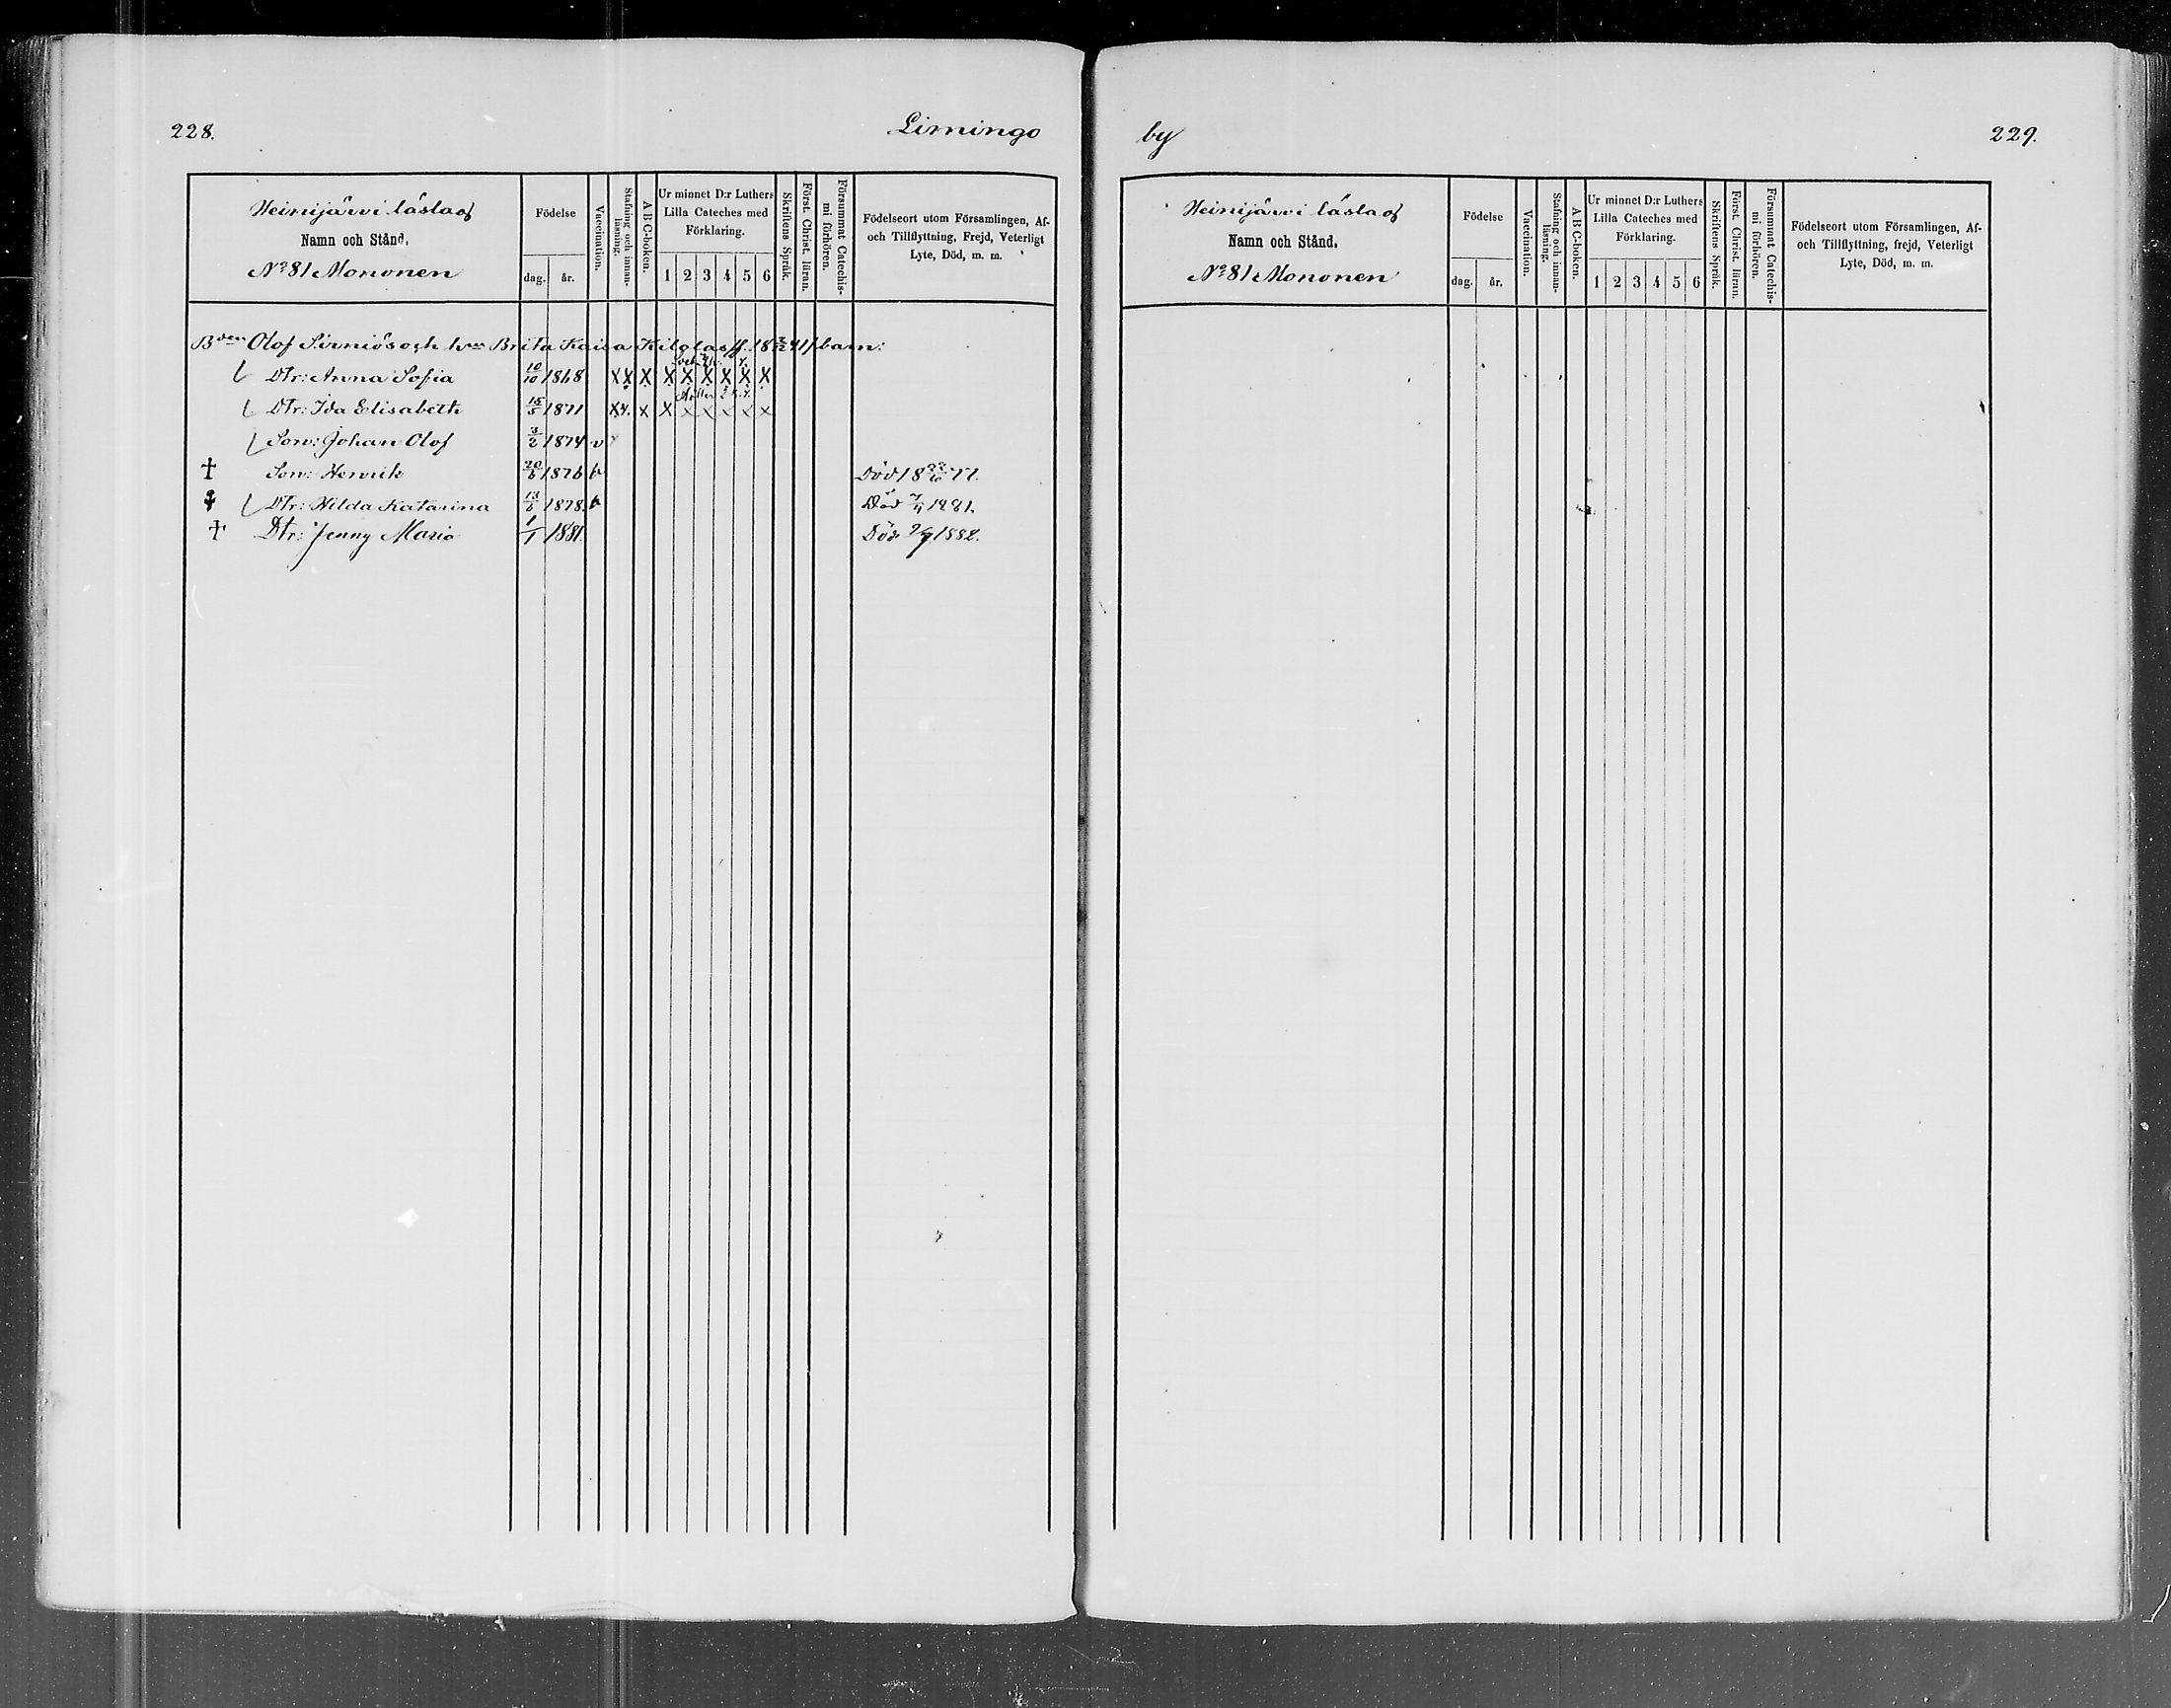 228.
Limingo
Heinijärvi läslag
Namn och Stånd.
No 81 Mononen
Födelse
dag. år.
Vaccination.
Stafning och innan-
läsning.
A B C-boken.
Ur minnet D:r Luthers
Lilla Cateches med
Förklaring.
1 2 3 4 5 6
Skriftens Språk.
Först. Christ. läran.
Försummat Catechis-
mi förhören.
Födelseort utom Församlingen, Af-
och Tillflyttning, Frejd, Veterligt
Lyte, Död, m. m.
Bden Olof Sirniös och hu Brita Kaisa Kilglas /f. 18 2/2 41/ barn:
Dtr: Anna Sofia 10/10 1868 X X X X X X X X X
Dtr: Ida Elisabeth 15/5 1871 X 4. x X x x x x x
Son: Johan Olof 3/2 1874 v
† Son: Henrik 20/6 1876 v Död 18 77.
† Dtr: Hilda Katarina 13/6 1878. v Död 1881.
† Dtr: Jenny Maria 1/1 1881. Död 1882.
by
229.
Heinijärvi läslag
Namn och Stånd.
No 81 Mononen
Födelse
dag. år.
Vaccination.
Stafning och innan-
läsning.
A B C-boken.
Ur minnet D:r Luthers
Lilla Cateches med
Förklaring.
1 2 3 4 5 6
Skriftens Språk.
Först. Christ. läran.
Försummat Catechis-
mi förhören.
Födelseort utom Församlingen, Af-
och Tillflyttning, frejd, Veterligt
Lyte, Död, m. m.